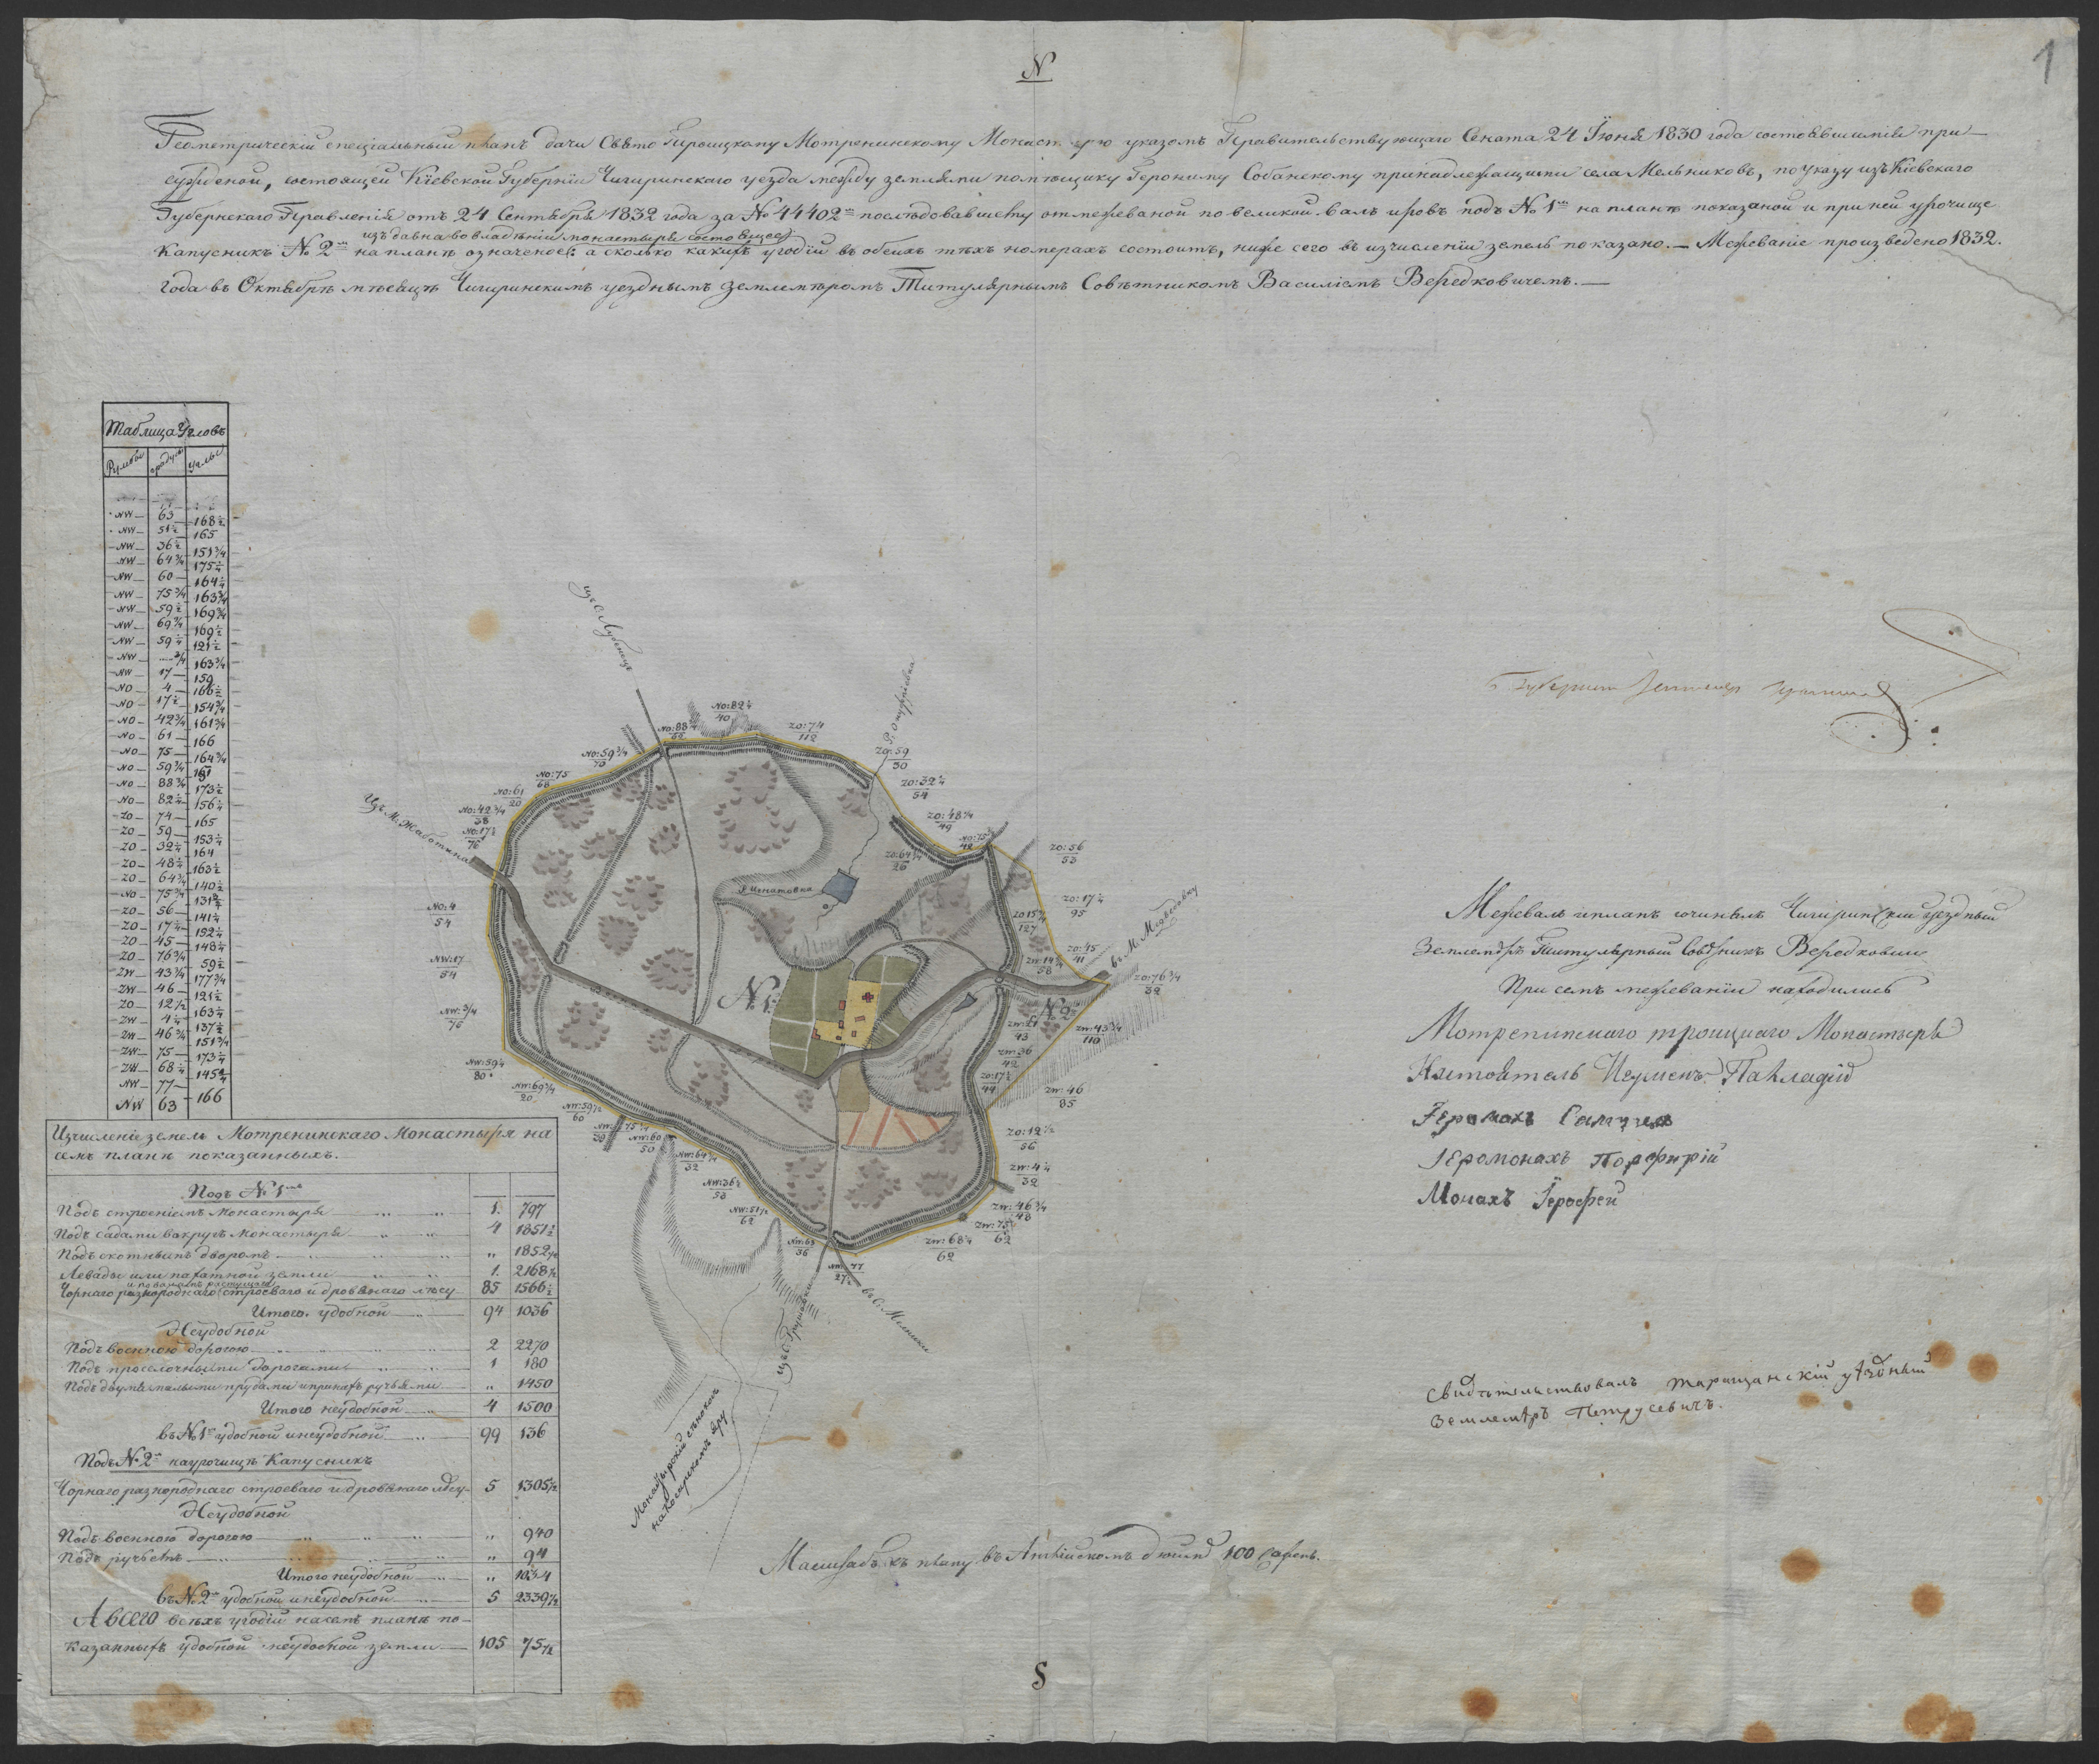 N
1
Геометрическій спеціальный планъ дачи Свято Троицкому Мотренинскому Монаст ую указомъ Правительствующаго Сената 24 Іюня 1830 года состоявшимся при-
сужденой, состоящей Кіевской Губерніи Чигиринскаго уезда между землями помѣщику Герониму Собанскому принадлежащими села Мельниковъ, по указу изъ Кіевскаго
Губернскаго Правленія отъ 24 Сентября 1832 года за № 44402 последовавшему отмежеваной по великой валъ и ровъ подъ № 1 на планѣ показаной и при ней урочище
изъ давна во владѣніи монастыря состоящее
Капусникъ № 2 на планѣ означеное: а сколько какихъ угодій въ обеихъ тѣхъ номерахъ состоитъ, ниже сего въ изчисленіи земель показано.— Межеваніе произведено 1832.
года въ Октябрѣ мѣсяцѣ Чигиринскимъ уезднымъ Землемѣромъ Титулярнымъ Совѣтникомъ Василіемъ Вередковичемъ.—
Таблица Угловъ
Румбы градусы Углы
NW 63 168½
NW 51½ 165
NW 36½ 151¾
NW 64¾ 175¼
NW 60 164¼
NW 75¾ 163¾
NW 59½ 169¾
NW 69¾ 169½
NW 59¼ 121½
NW ¾ 163¾
NW 17 159
NO 4 166½
NO 17½ 154¾
NO 42¾ 161¾
NO 61 166
NO 75 164¾
NO 59¾ 151
NO 88¾ 173½
NO 82¼ 156¼
ZO 74 165
ZO 59 153¼
ZO 32¼ 164
ZO 48¼ 163½
ZO 64¾ 140½
NO 75¾ 131¾
ZO 56 141¼
ZO 17¼ 152¼
ZO 45 148¼
ZO 76¾ 59½
ZW 43¼ 177¾
ZW 46 121½
ZO 12½ 163¼
ZW 4¼ 137½
ZW 46¾ 151¾
ZW 75 173¼
ZW 68¼ 145¾
NW 77 166
NW 63
изъ С. Лубенецъ
Р. Онуфріевка
Изъ М. Жаботина
въ М. Медведовку
Р. Игнатовка
№ 1
№ 2
NO: 82¼ 40
NO: 88¾ 62
ZO: 74 112
ZO: 59 30
NO: 59¾ 70
NO: 75 68
ZO: 32¼ 54
NO: 61 20
NO: 42¾ 38
NO: 17½ 76
ZO: 48¼ 49
NO: 75 42
ZO: 64¾ 26
ZO: 56 53
ZO: 17¼ 95
NO: 4 54
ZO: 45 41
NW: 17 54
ZO: 76¾ 32
NW: ¾ 76
ZW: 43¼ 110
NW: 59¼ 80
NW: 69¾ 20
ZW: 46 85
NW: 59½ 60
NW: 60 50
ZO: 12½ 56
ZW: 4¼ 32
NW: 36½ 53
NW: 51½ 62
ZW: 46¾ 48
ZW: 75 62
ZW: 68¼ 62
NW: 63 36
NW: 77 27½
изъ С. Грушовки
въ С. Мельники
Монастырскій сѣнокосъ
на Косарскомъ яру
Изчисленіе земель Мотренинскаго Монастыря на
семъ планѣ показанныхъ.
Подъ № 1
Подъ строеніемъ монастыря 1 797
Подъ садами вокругъ монастыря 4 1851½
Подъ скотнымъ дворомъ „ 1852½
Левады или пахатной земли 1 2168½
и по валамъ растущаго
Чорнаго разнороднаго строеваго и дровянаго лѣсу 85 1566½
Итого удобной 94 1036
Неудобной
Подъ военною дорогою 2 2270
Подъ проселочными дорогами 1 180
Подъ двумя малыми прудами и при нихъ ручьями „ 1450
Итого неудобной 4 1500
въ № 1 удобной и неудобной 99 136
Подъ № 2 на урочищѣ Капусникъ
Чорнаго разнороднаго строеваго и дровянаго лѣсу 5 1305½
Неудобной
Подъ военною дорогою „ 940
Подъ ручьемъ „ 94
Итого неудобной „ 1034
въ № 2 удобной и неудобной 5 2339½
А всего всѣхъ угодій на семъ планѣ по-
казанныхъ удобной неудобной земли 105 75½
Масштабъ къ плану въ Англійскомъ дюймѣ 100 Сажень.
S
Межевалъ и планъ сочинялъ Чигиринскій уездный
Землемѣръ Титулярный Совѣтникъ Вередковичъ
При семъ межеваніи находились
Мотренинскаго троицкаго Монастыря
Настоятель Игуменъ Палладій
Іеромонахъ Самуилъ
Іеромонахъ Порфирій
Монахъ Іерофей
Свидѣтельствовалъ таращанскій уѣздный
Землемѣръ Петрусевичъ.